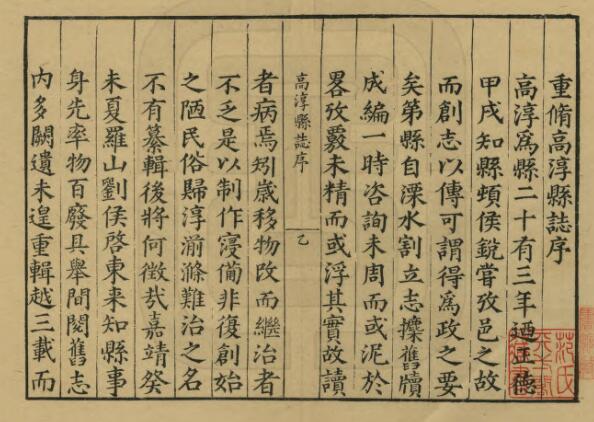 重脩高淳縣誌序
高淳爲縣二十有三年廼正德
甲戌知縣頓侯銳嘗攷邑之故
而創志以傳可謂得爲政之要
矣第縣自溧水割立志據舊牘
成編一時咨詢未周而或泥於
畧攷覈未精而或浮其實故讀
高淳縣誌序
乙
者病焉矧歲移物改而繼治者
不乏是以制作寖備非復創始
之陋民俗歸淳湔滌難治之名
不有纂輯後將何徵㢤嘉靖癸
未夏羅山劉侯啓東来知縣事
身先率物百廢具舉間閱舊志
内多闕遺未遑重輯越三載而